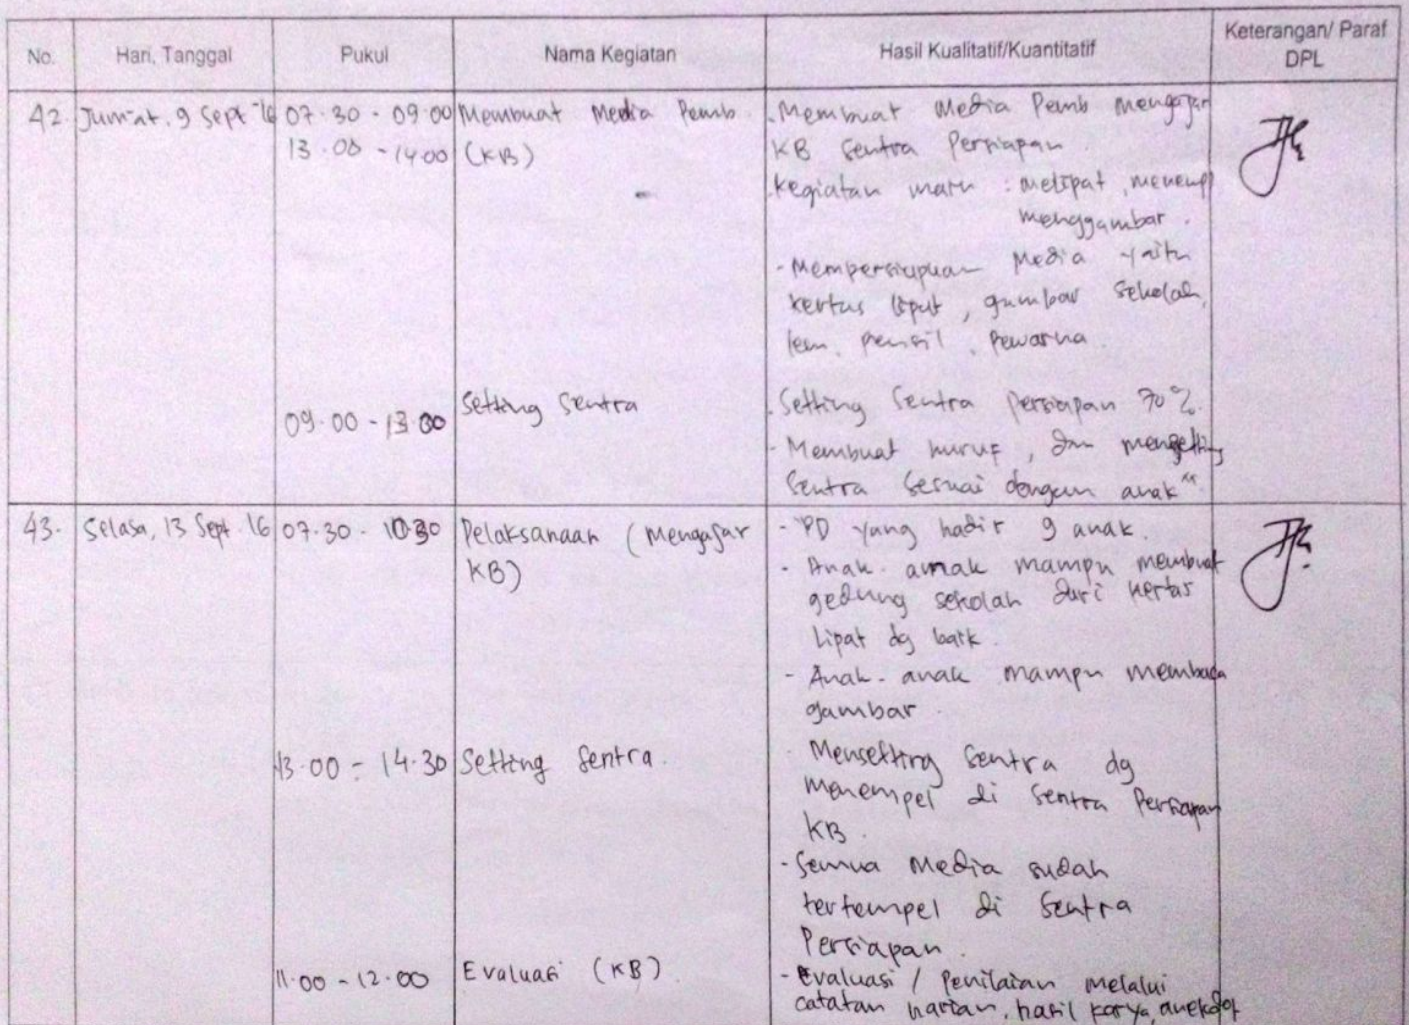 No. Hari, Tanggal Pukul Nama Kegiatan Hasil Kualitatif/Kuantitatif Keterangan/ Paraf DPL
42. Jum'at, 9 Sept '16 07.30 - 09.00 Membuat Media Pemb. - Membuat Media Pemb mengajar
13.00 - 14.00 (KB) KB Sentra Persiapan.
- kegiatan : melipat, menempel
menggambar.
- Mempersiapkan Media yaitu
kertas lipat, gambar sekolah,
lem, pensil, pewarna.
09.00 - 13.00 Setting Sentra - Setting Sentra persiapan 70%.
- Membuat huruf, dan mengsetting
Sentra sesuai dengan anak".
43. Selasa, 13 Sept. 16 07.30 - 10.30 Pelaksanaan (Mengajar - PD yang hadir 9 anak.
KB) - Anak-anak mampu membuat
gedung sekolah dari kertas
Lipat dg baik.
- Anak-anak mampu membaca
gambar.
13.00 - 14.30 Setting Sentra. - Mensetting Sentra dg
menempel di Sentra Persiapan
KB.
- Semua Media sudah
tertempel di Sentra
Persiapan.
11.00 - 12.00 Evaluasi (KB) - Evaluasi / Penilaian melalui
catatan harian, hasil karya, anekdot